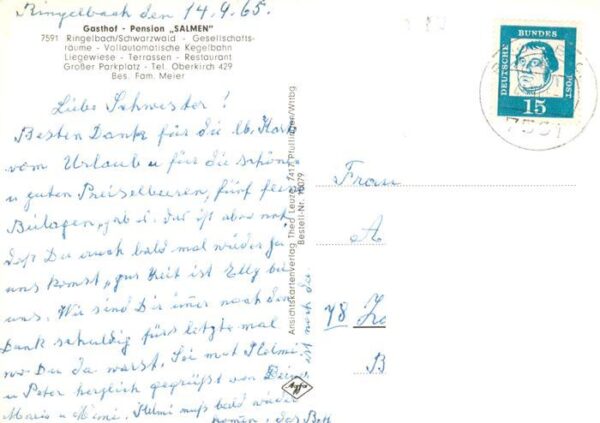 Ringelbach den 14.9.65.
Gasthof - Pension „SALMEN"
7591 Ringelbach/Schwarzwald - Gesellschafts-
räume - Vollautomatische Kegelbahn
Liegewiese - Terrassen - Restaurant
Großer Parkplatz - Tel. Oberkirch 429
Bes. Fam. Meier
Liebe Schwester!
Besten Dank für die lb. Karte
vom Urlaub u für die schönen
u guten Preiselbeeren, fünf
Beilagen, das ist aber
Daß Du auch bald mal wieder zu
uns komst, zur Zeit ist Elly bei
uns. Wir sind Dir imer noch den
Dank schuldig fürs letzte mal
wo Du da warst. Sei mit Helmi
u Peter herzlich gegrüßt von
Maria u Helmi muß bald wieder
das Bett
ist noch da
Ansichtskartenverlag Theo Leuze, 7417 Pfullingen/Wttbg
Bestell-Nr. 11079
DEUTSCHE BUNDES POST
15
7591
Frau
A
78
B
Agfa